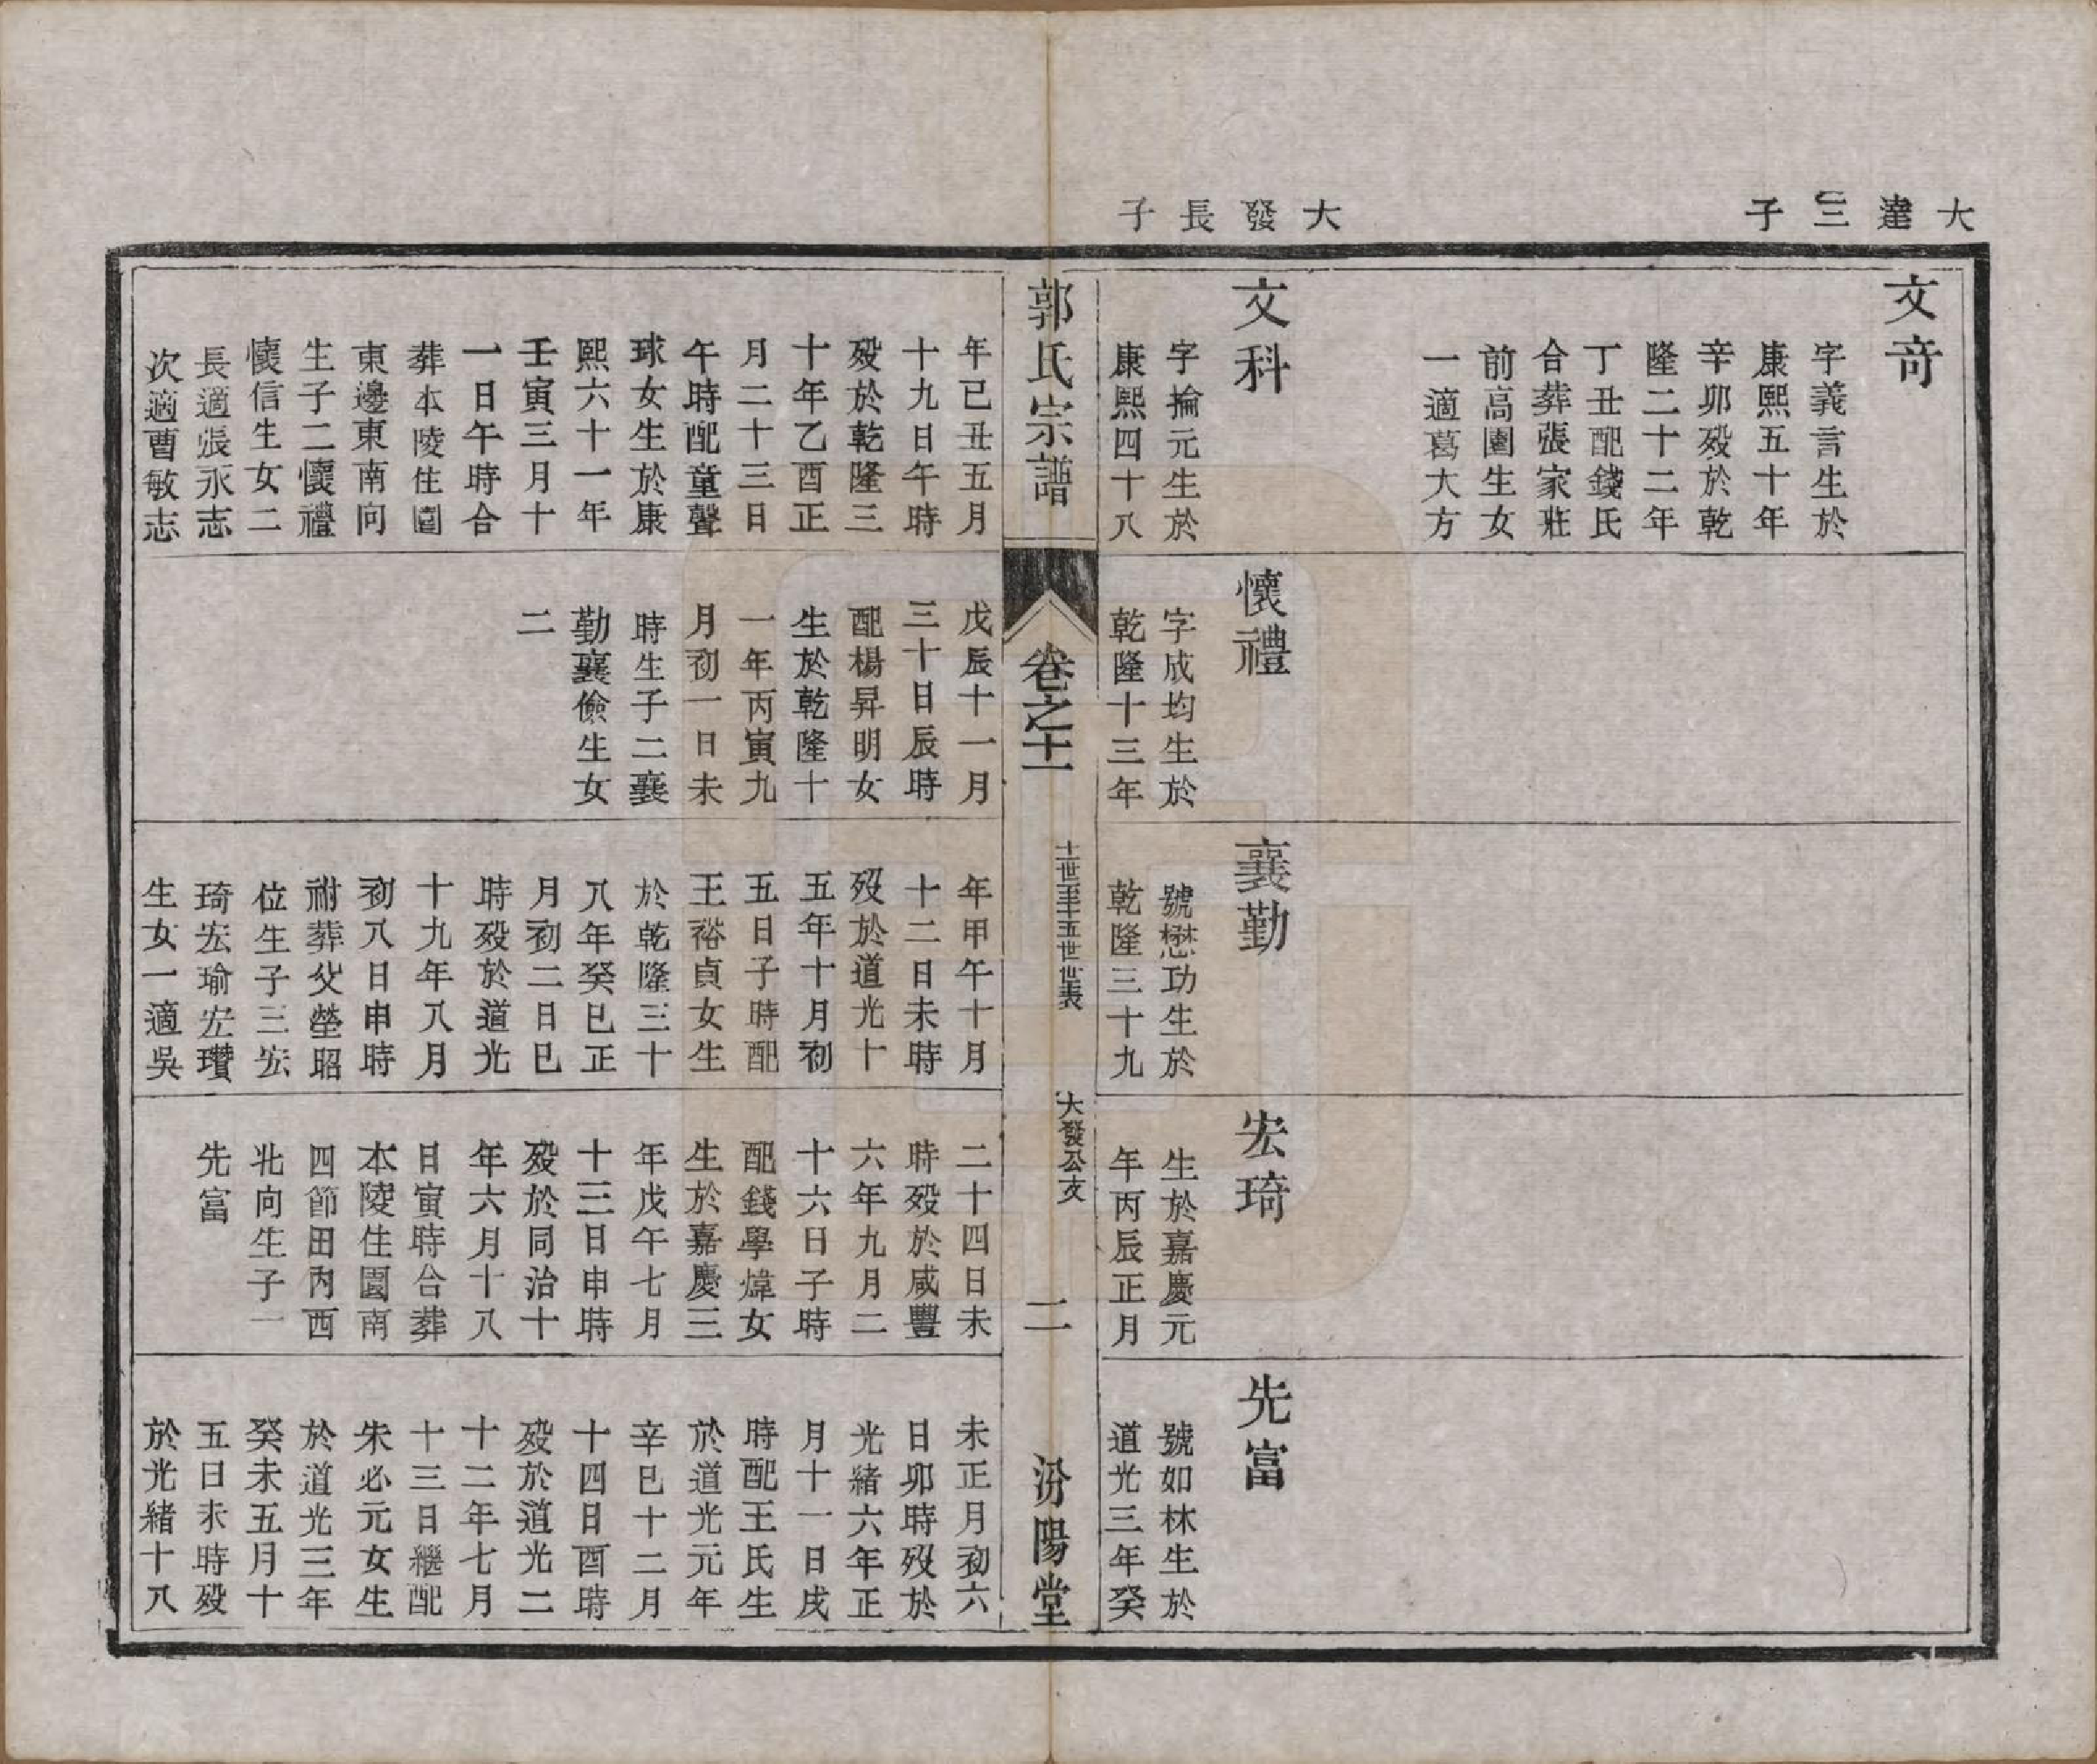 大達三子
文奇
字義言生於
康熙五十年
辛卯歿於乾
隆二十二年
丁丑配錢氏
合葬張家莊
前高園生女
一適葛大方
大發長子
文科
字掄元生於
康熙四十八
年已丑五月
十九日午時
歿於乾隆三
十年乙酉正
月二十三日
午時配童聲
球女生於康
熙六十一年
壬寅三月十
一日午時合
葬本陵住園
東邊東南向
生子二懷禮
懷信生女二
長適張永志
次適曹敏志
懷禮
字成均生於
乾隆十三年
戊辰十一月
三十日辰時
配楊昇明女
生於乾隆十
一年丙寅九
月初一日未
時生子二襄
勤襄儉生女
二
襄勤
號懋功生於
乾隆三十九
年甲午十月
十二日未時
歿於道光十
五年十月初
五日子時配
王裕貞女生
於乾隆三十
八年癸巳正
月初二日巳
時歿於道光
十九年八月
初八日申時
祔葬父塋昭
位生子三宏
琦宏瑜宏瓚
生女一適吳
宏琦
生於嘉慶元
年丙辰正月
二十四日未
時歿於咸豐
六年九月二
十六日子時
配錢學煒女
生於嘉慶三
年戊午七月
十三日申時
歿於同治十
年六月十八
日寅時合葬
本陵住園南
四節田內西
北向生子一
先富
先富
號如林生於
道光三年癸
未正月初六
日卯時歿於
光緒六年正
月十一日戌
時配王氏生
於道光元年
辛巳十二月
十四日酉時
歿於道光二
十二年七月
十三日繼配
朱必元女生
於道光三年
癸未五月十
五日未時歿
於光緒十八
郭氏宗譜
卷之十一
十一世至十五世世表
大發公支
二
汾陽堂